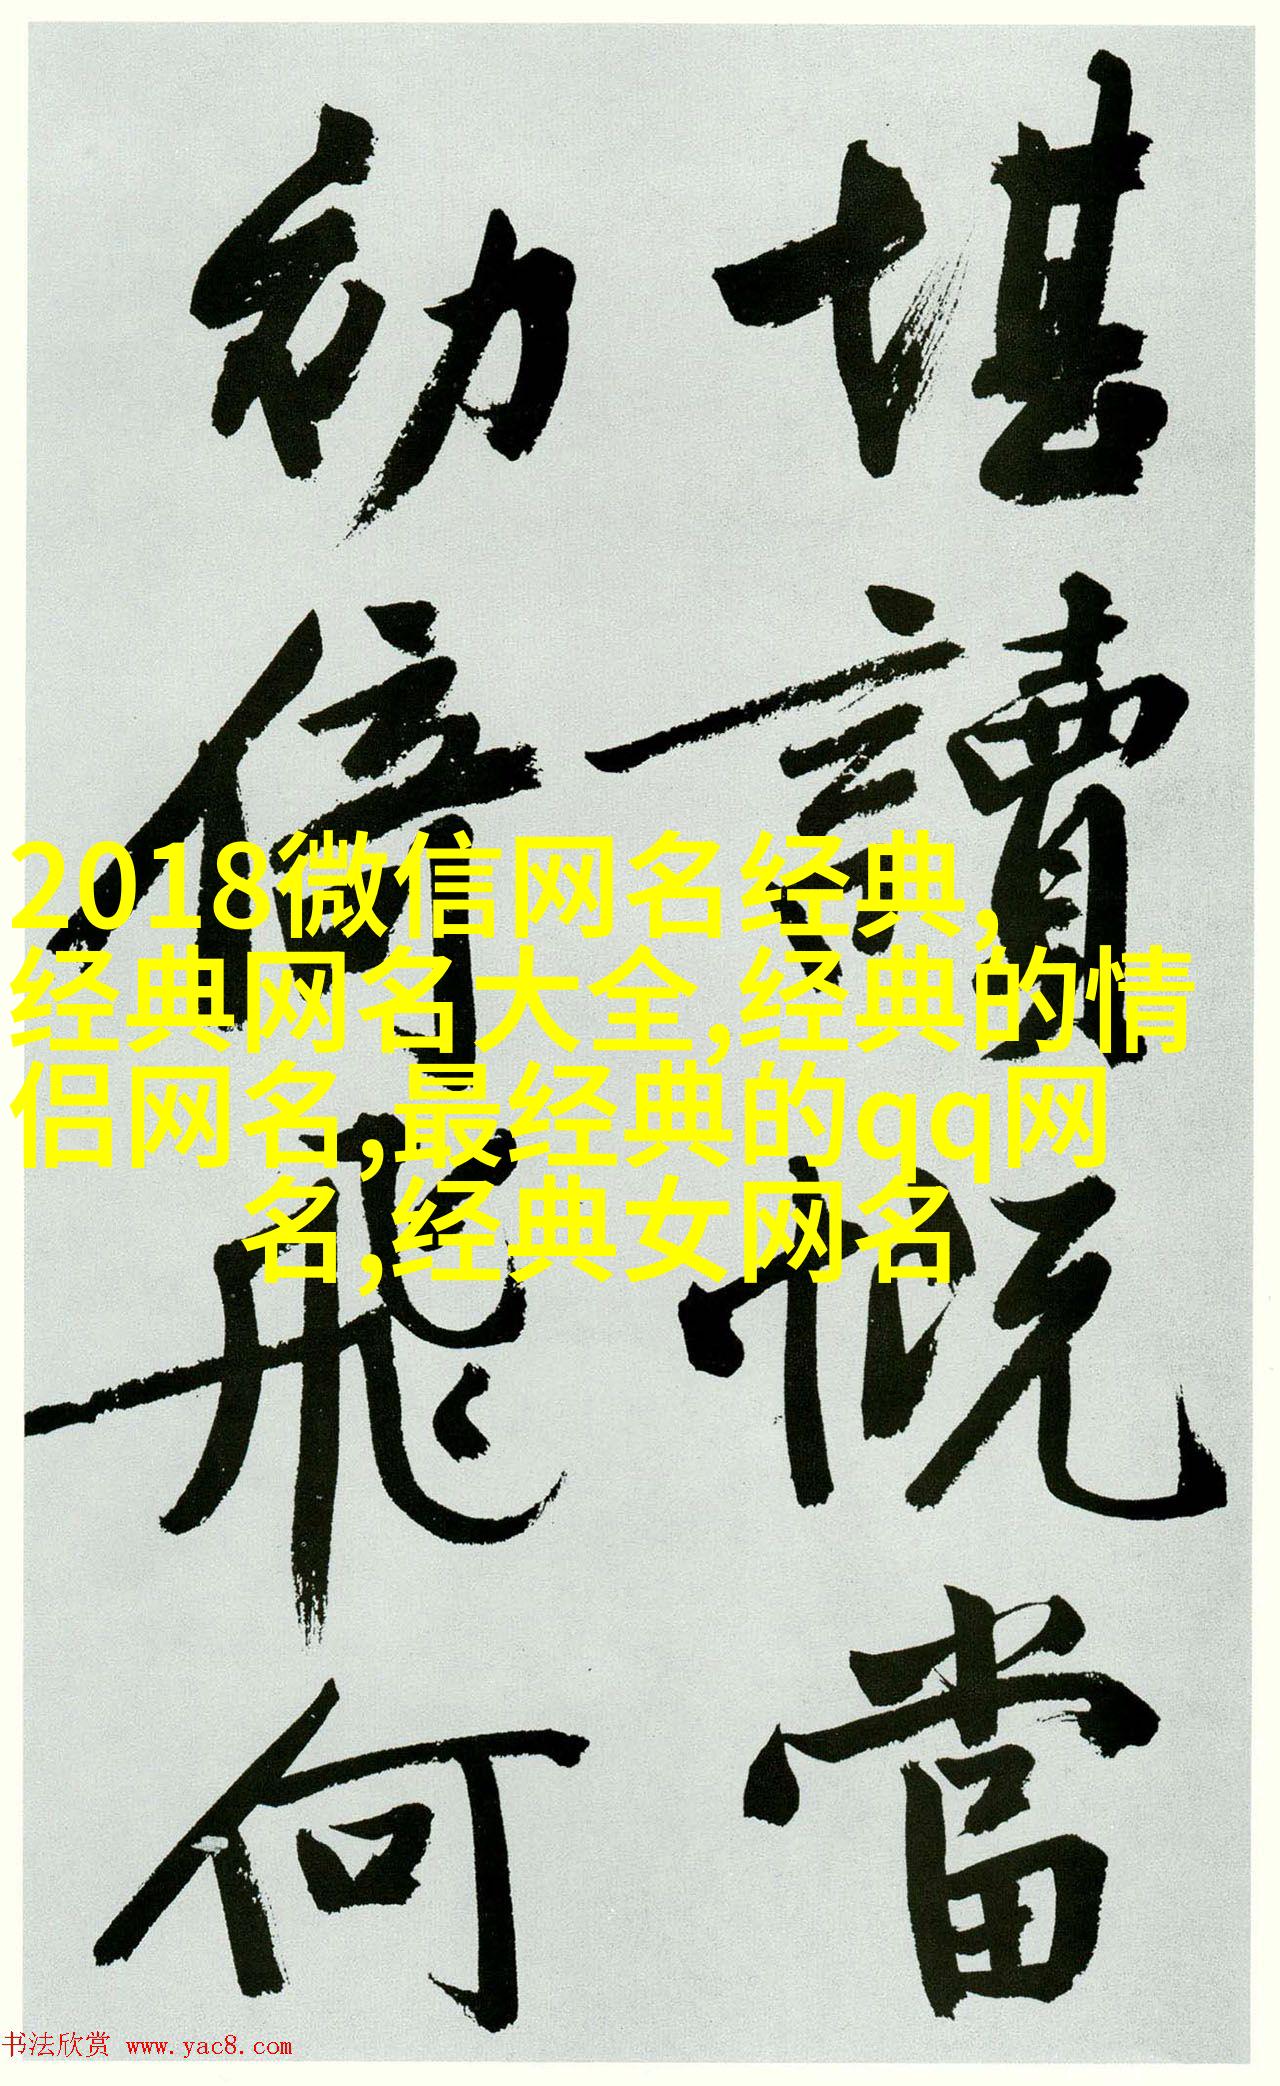 堪讀慨當
初倚飛何
2018微信网名经典,
经典网名大全,经典的情
侣网名,最经典的qq网
名,经典女网名
书法欣赏 www.yac8.com